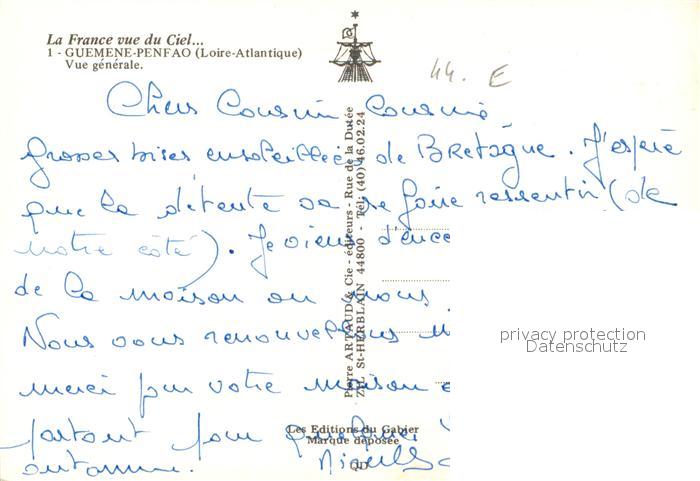 La France vue du Ciel...
1 - GUEMENE-PENFAO (Loire-Atlantique)
Vue générale.
44. E
Chers Cousin Cousine
Grosses bises ensoleillées de Bretagne. J'espère
que la détente va se faire ressentir (de
notre côté). Je viens d'ence
de la maison ou nous
Nous vous renouvellons
merci pour votre maison
partout pour quelques
automne.
Pierre ARTAUD & Cie - éditeurs - Rue de la Dutée
Z.I.L. St-HERBLAIN 44800 - Tél: (40) 46.02.24
privacy protection
Datenschutz
Les Editions du Gabier
Marque déposée